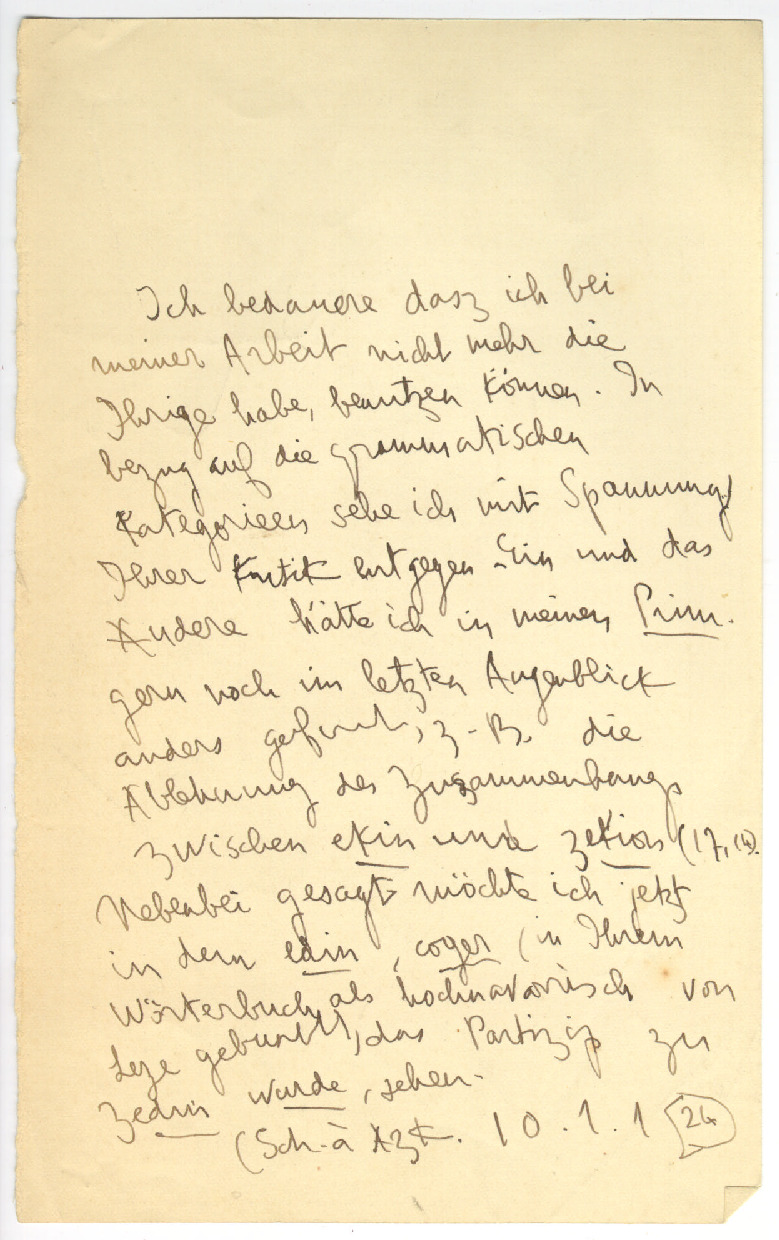 Ich bedauere dasz ich bei
meiner Arbeit nicht mehr die
Ihrige habe, benutzen können. In
bezug auf die grammatischen
Kategorieen sehe ich mit Spannung
Ihrer Kritik entgegen. Ein und das
Andere hätte ich in meinen Prim.
gern noch im letzten Augenblick
anders z.B. die
Ablehnung des Zusammenhangs
zwischen ekin und zekion (17,14).
Nebenbei gesagt möchte ich jetzt
in dem edin, coger (in Ihrem
Wörterbuch als hochnavarrisch von
Leze gebucht), das Partizip zu
zedin wurde, sehen.
(Sch. à Azk. 10.1.1 24